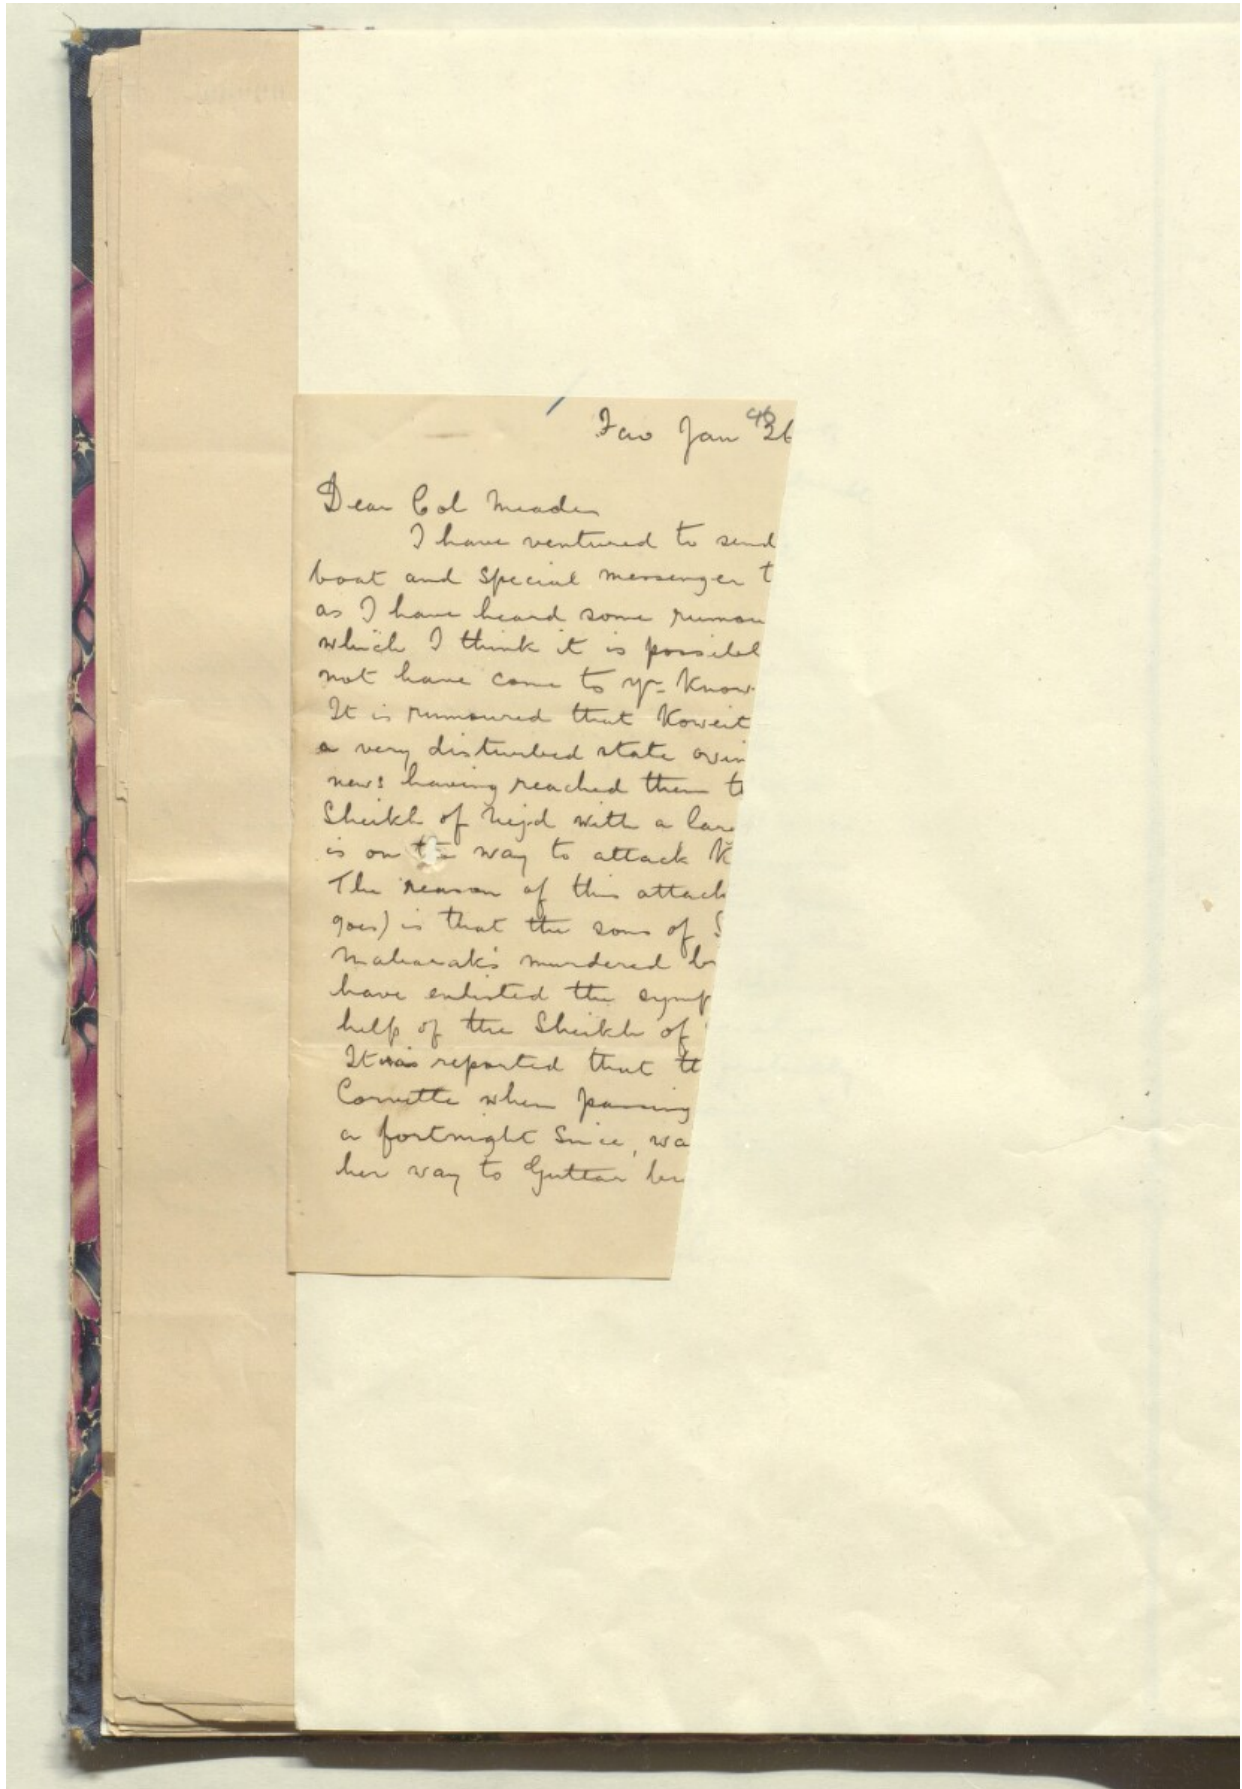 Fao Jan 26
Dear Col Meade
I have ventured to send
boat and special messenger t
as I have heard some rumou
which I think it is possibl
not have come to yr know
It is rumoured that Koweit
a very disturbed state owin
news having reached them t
Sheikh of Nejd with a lar
is on the way to attack K
The reason of this attack
goes) is that the sons of S
Mabarak's murdered br
have enlisted the symp
help of the Sheikh of
It was reported that th
Corvette when passing
a fortnight since, wa
her way to Guttar bu